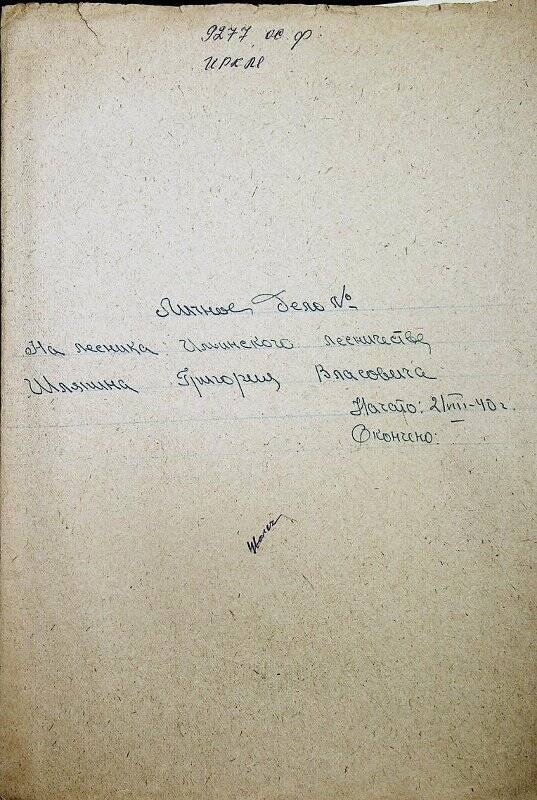 9277 ос. ф.
ИРКЛЕ
Личное Дело №
На лесника Илминского лесничества
Шляпина Григория Власовича
Начато: 2/VIII-40 г.
Окончено: